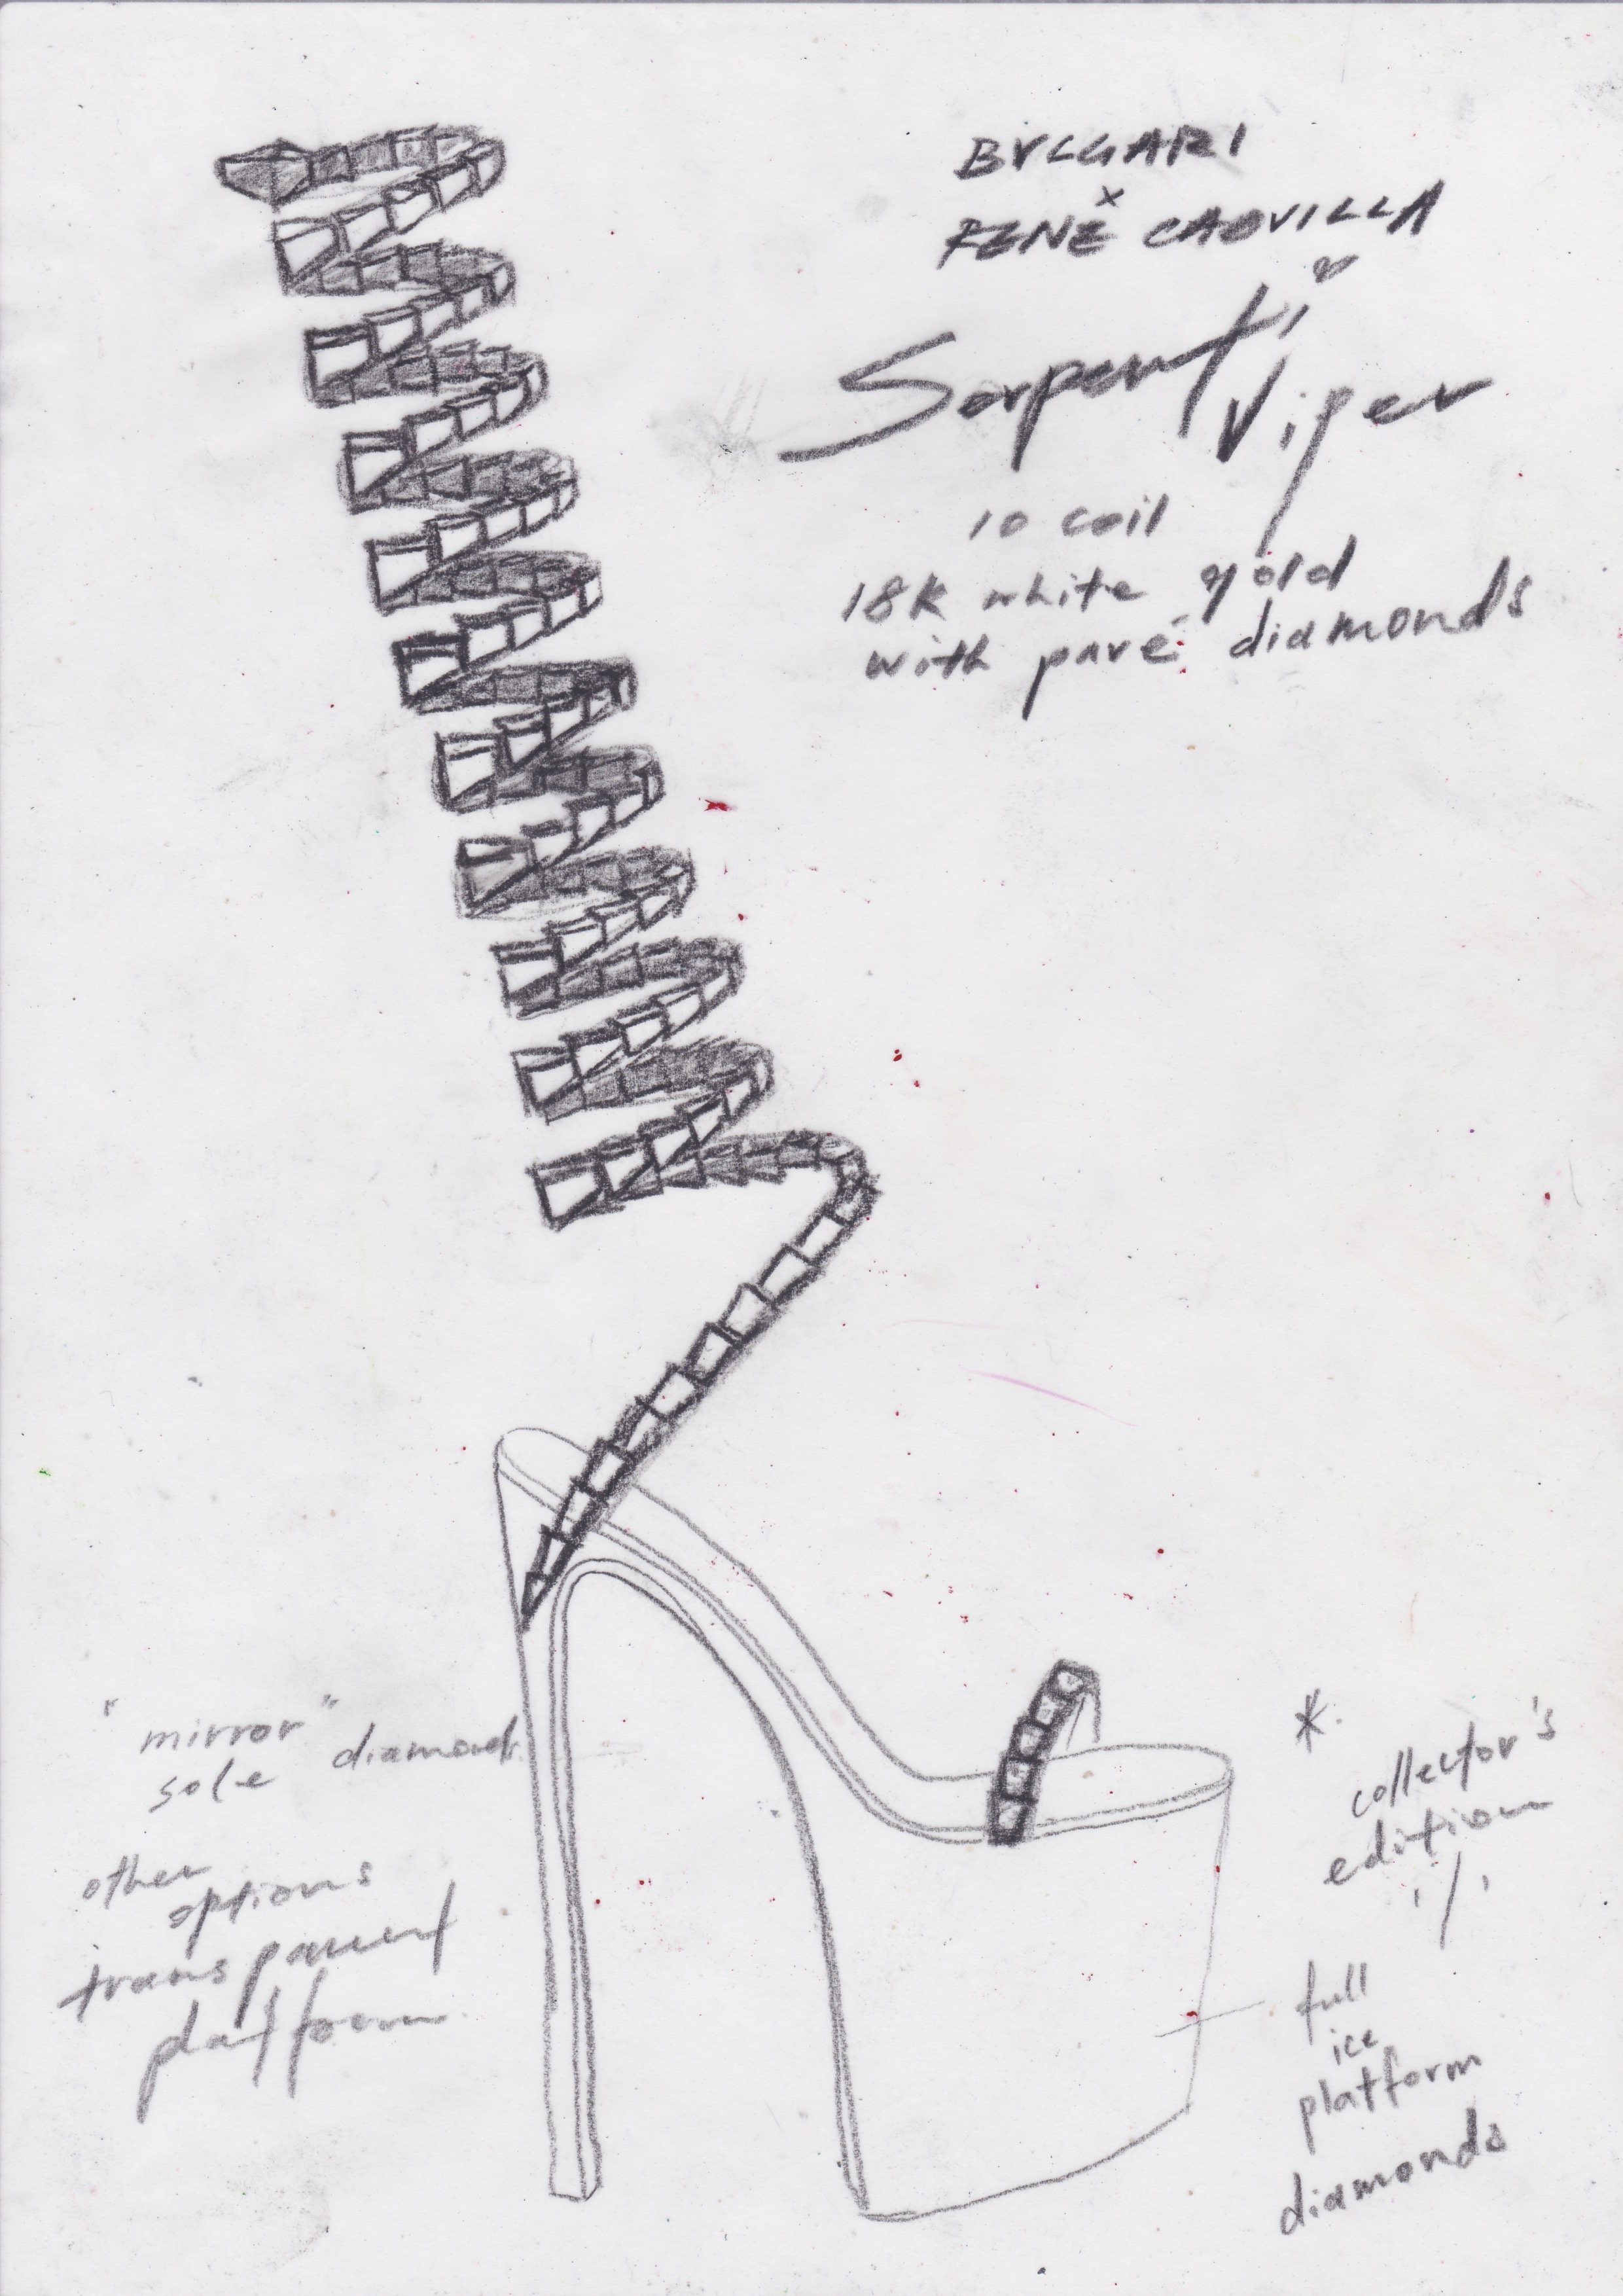 BVLGARI
x
RENĖ CAOVILLA
Serpenti
Viper
10 coil
18K white gold
with pavé diamonds
"mirror"
sole diamonds
other
options
transparent
platform
*.
collector's
edition
1/1
full
ice
platform
diamonds